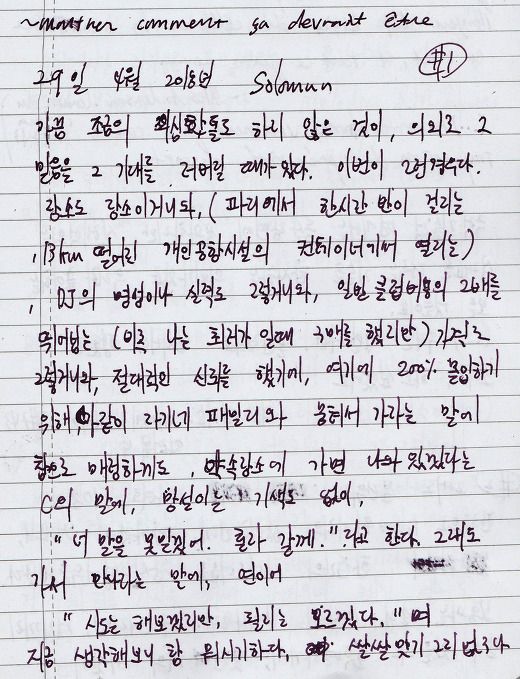 ~matther comment ça devrait Être
#1
29일 4월 2018년 Solomun
가끔 조금의 의심조차도 하지 않은 것이, 의외로 그
믿음을 그 기대를 저버릴 때가 있다. 이번이 그런경우다.
장소도 장소이거니와, (파리에서 한시간 반이 걸리는
, 13km 떨어진 개인공항시설의 컨테이너에서 열리는)
, DJ의 명성이나 실력도 그렇거니와, 일반 클럽비용의 2배를
뛰어넘는 (이후 나는 최저가 일때 구매를 했지만) 가격도
그렇거니와, 절대적인 신뢰를 했기에, 여기에 200% 몰입하기
위해, 같이 자기네 패밀리와 뭉쳐서 가자는 말에
참으로 매정하게도, 약속장소에 가면 나와 있겠다는
C의 말에, 망설이는 기색도 없이,
"너 말을 못믿겠어. 혼자 갈께." 라고 한다. 그래도
가서 만나자는 말에, 연이어
"시도는 해보겠지만, 될지는 모르겠다." 며
지금 생각해보니 참 뭐시기하다, 쌀쌀맞기 그지없구나